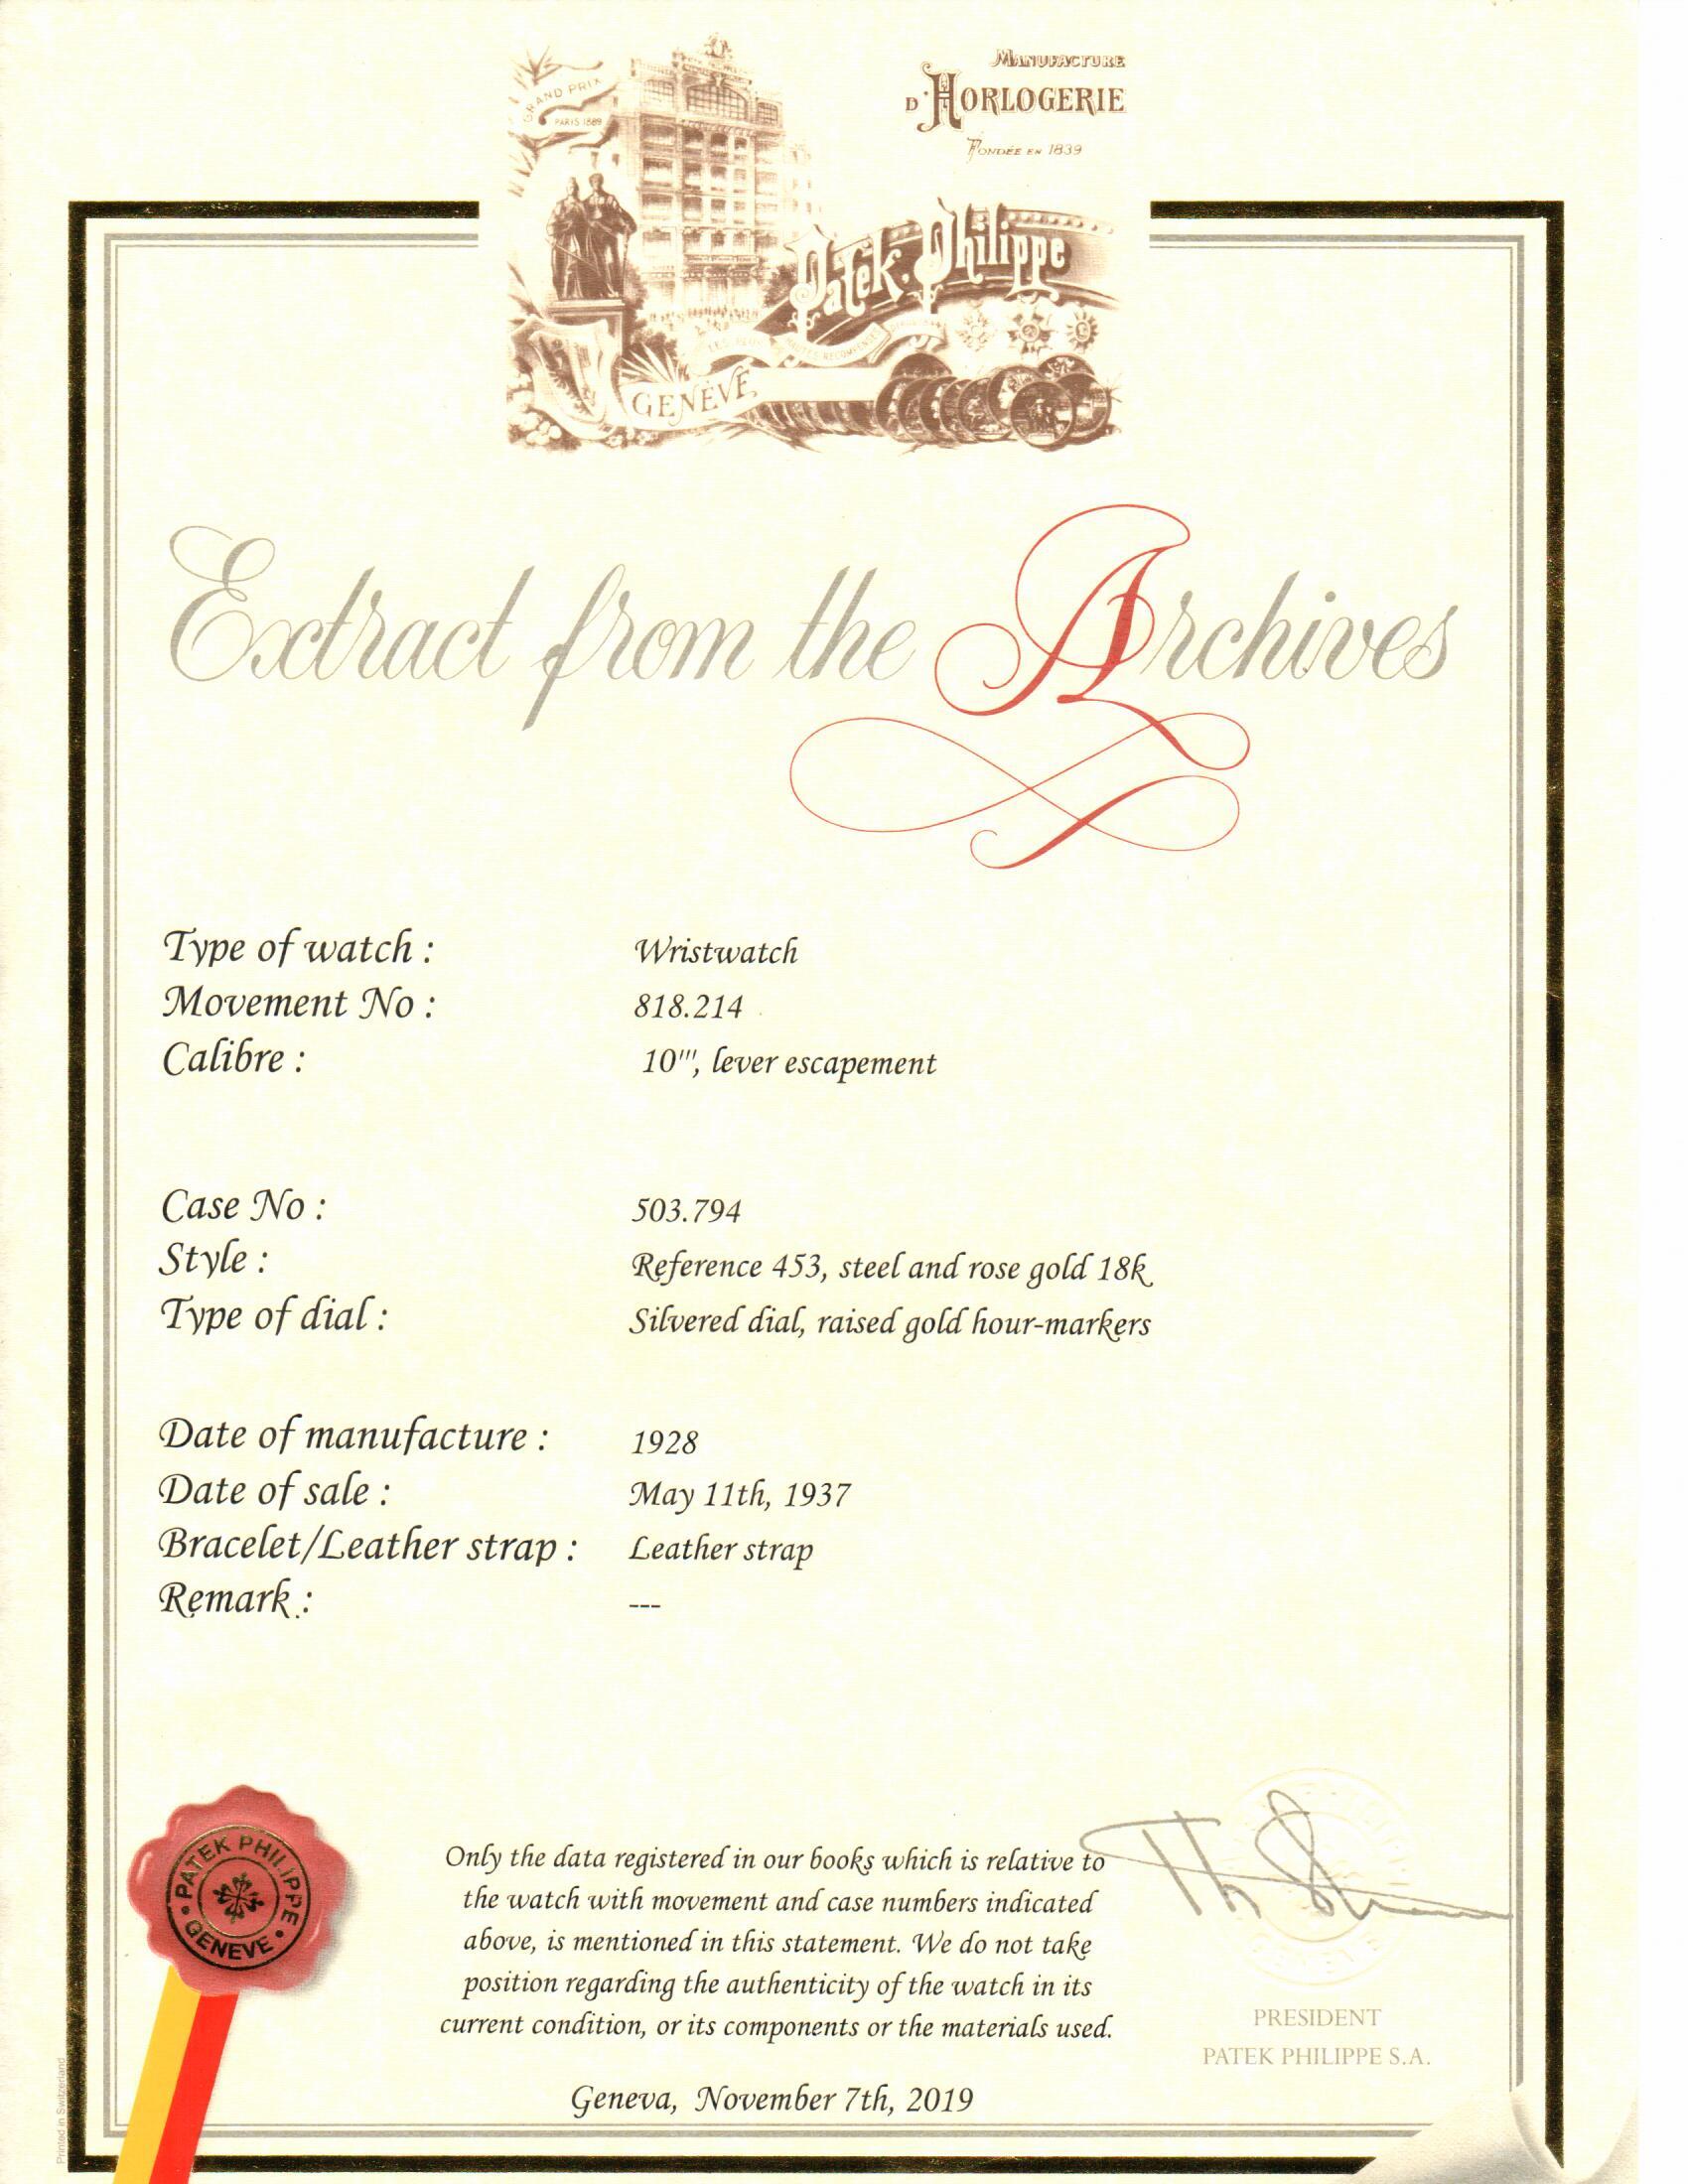 MANUFACTURE
D'HORLOGERIE
FONDÉE EN 1839
GRAND PRIX
PARIS 1889
Patek. Philippe
HAUTES RECOMPENSES
GENÈVE
Extract from the Archives
Type of watch : Wristwatch
Movement No : 818.214
Calibre : 10''', lever escapement
Case No : 503.794
Style : Reference 453, steel and rose gold 18k
Type of dial : Silvered dial, raised gold hour-markers
Date of manufacture : 1928
Date of sale : May 11th, 1937
Bracelet/Leather strap : Leather strap
Remark : ---
PATEK PHILIPPE
GENEVE
Only the data registered in our books which is relative to
the watch with movement and case numbers indicated
above, is mentioned in this statement. We do not take
position regarding the authenticity of the watch in its
current condition, or its components or the materials used.
PRESIDENT
PATEK PHILIPPE S.A.
Geneva, November 7th, 2019
Printed in Switzerland